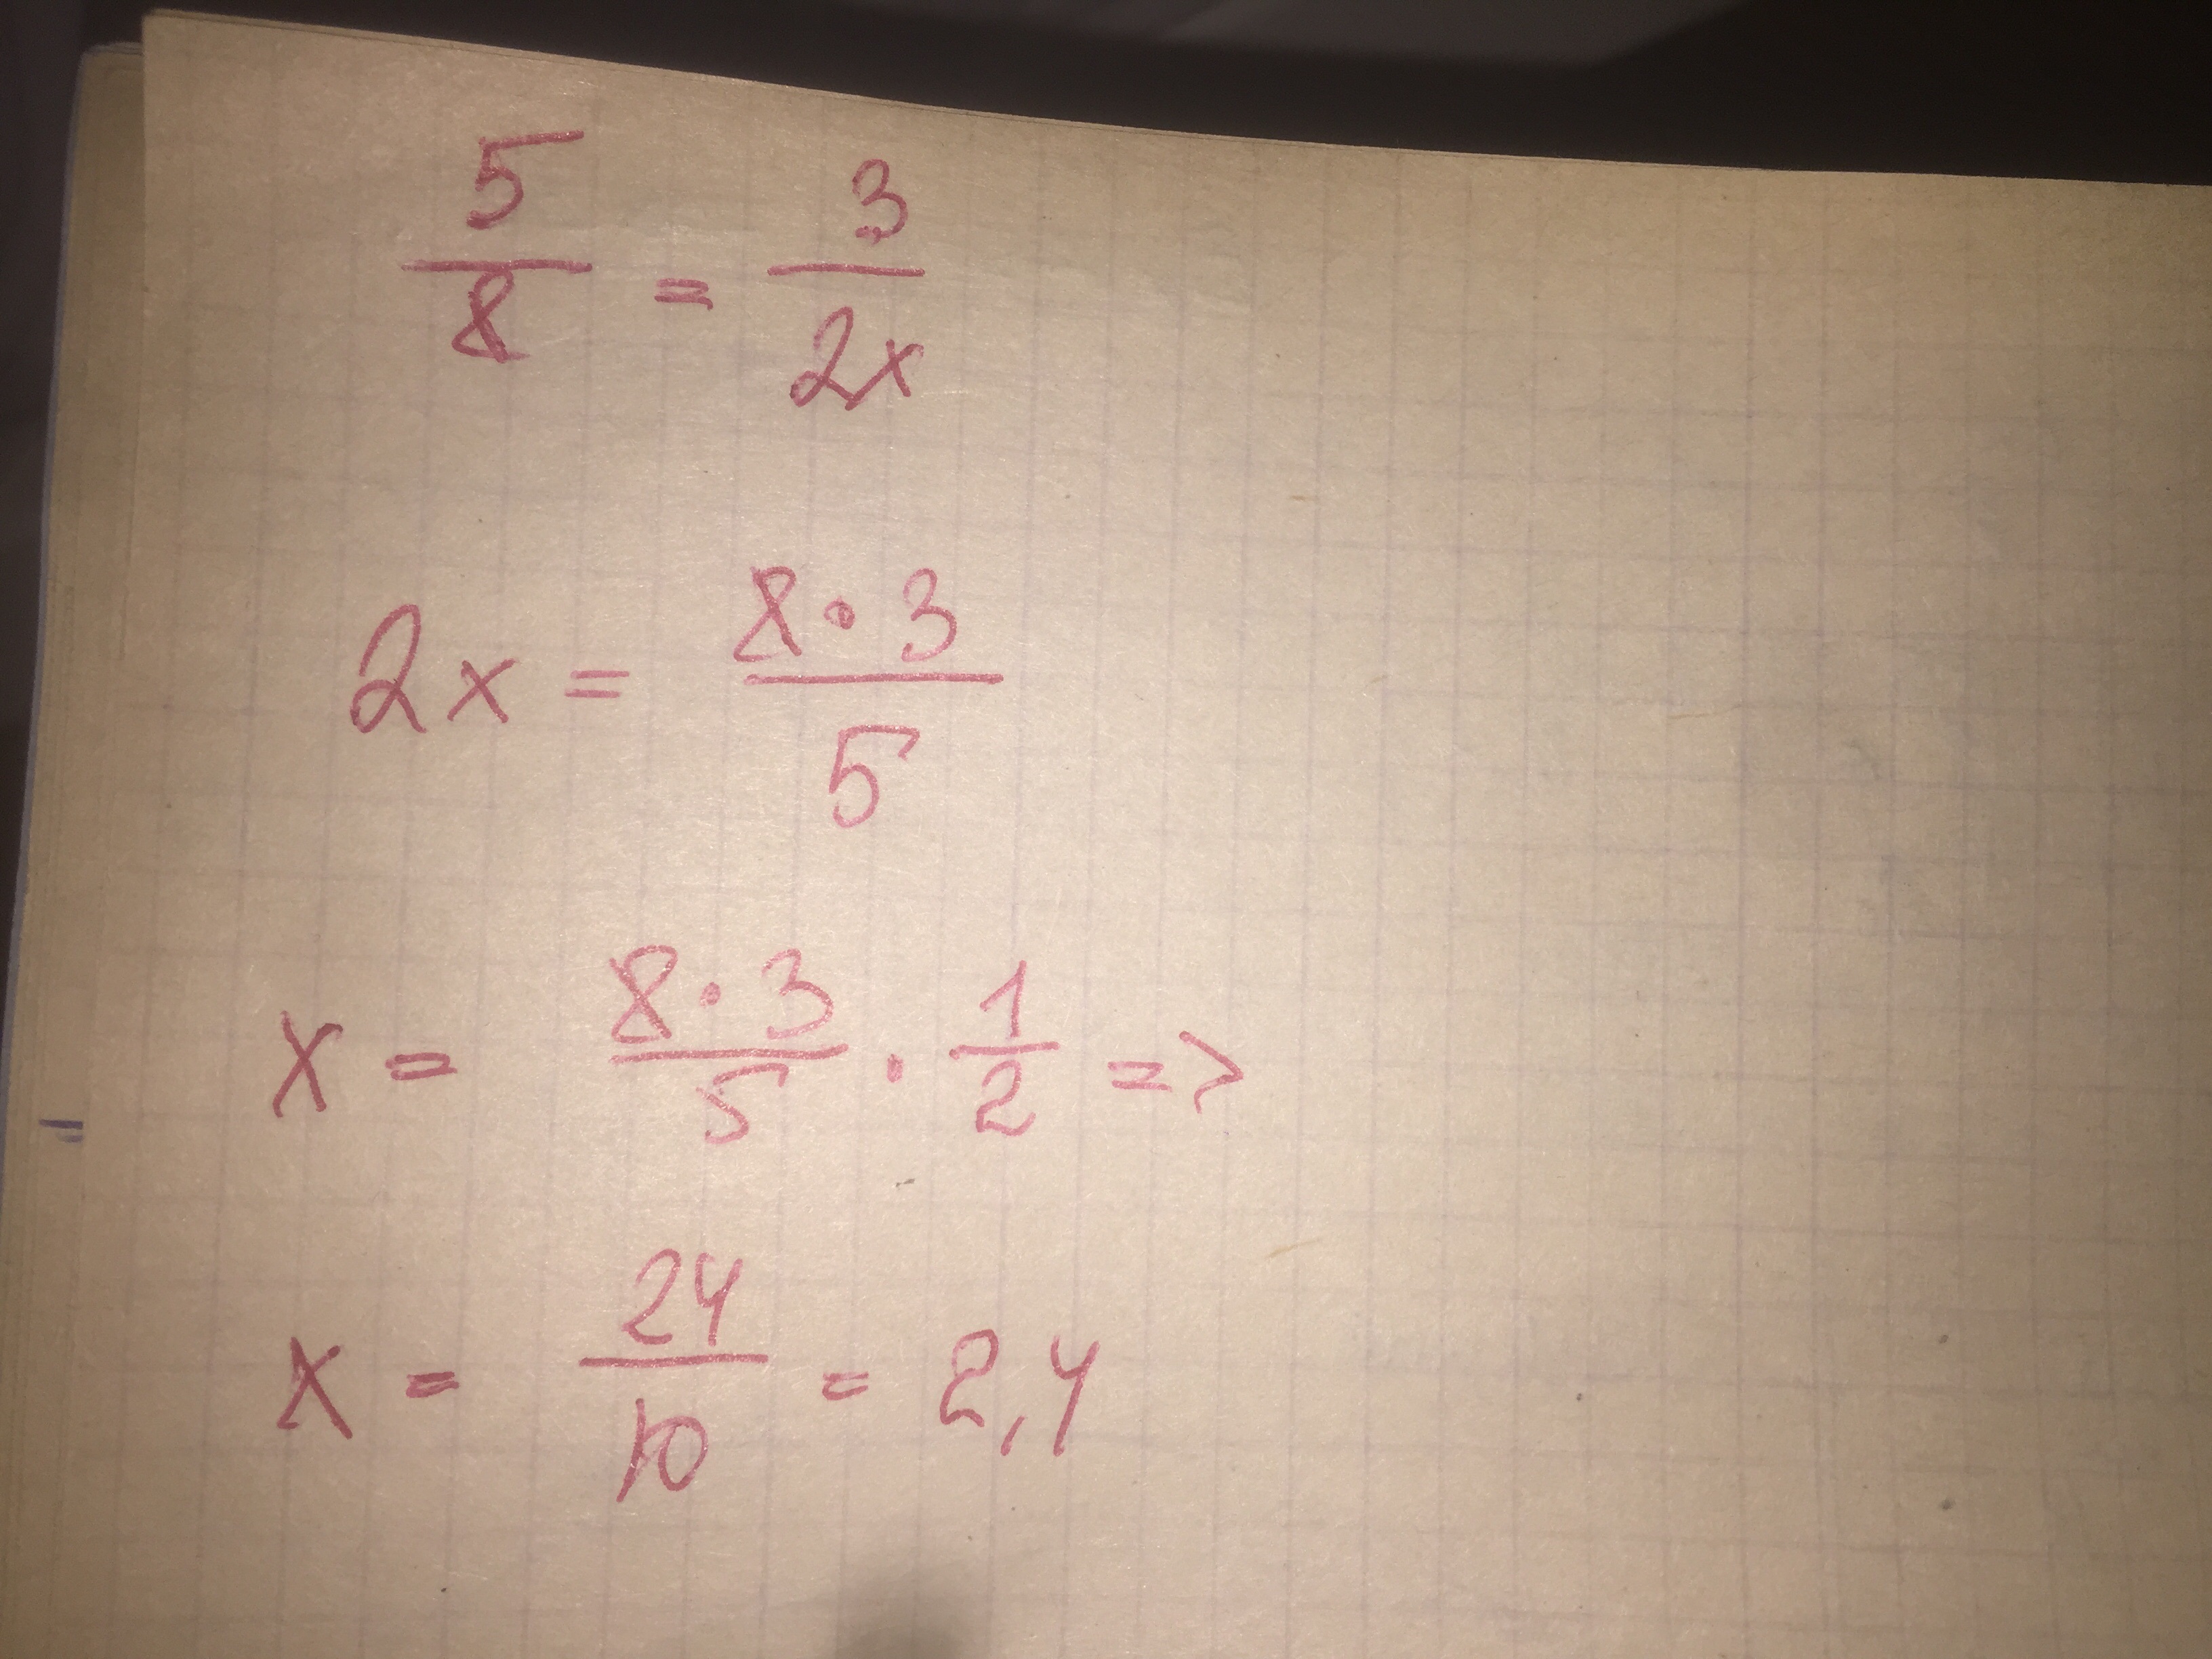 5/8 = 3/2x
2x = 8·3/5
x = 8·3/5 · 1/2 =>
x = 24/10 = 2,4